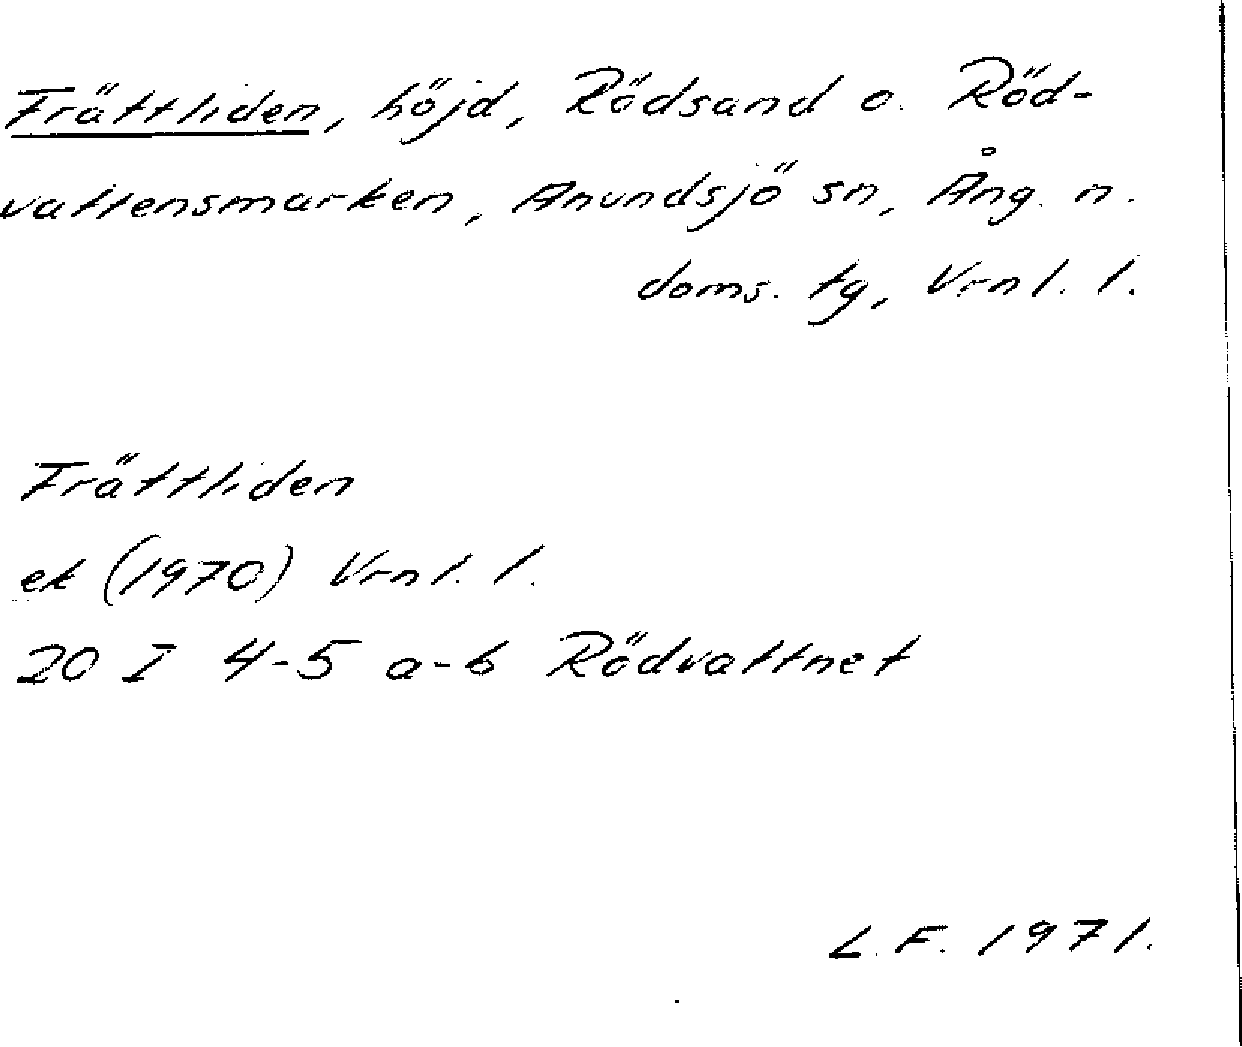 Frättliden, höjd, Rödsand o. Röd-
vattensmarken, Anundsjö sn, Ång. n.
doms. tg, Vrnl. l.
Frättliden
ek (1970) Vrnl. l.
20 I 4-5 a-b Rödvattnet
L. F. 1971.